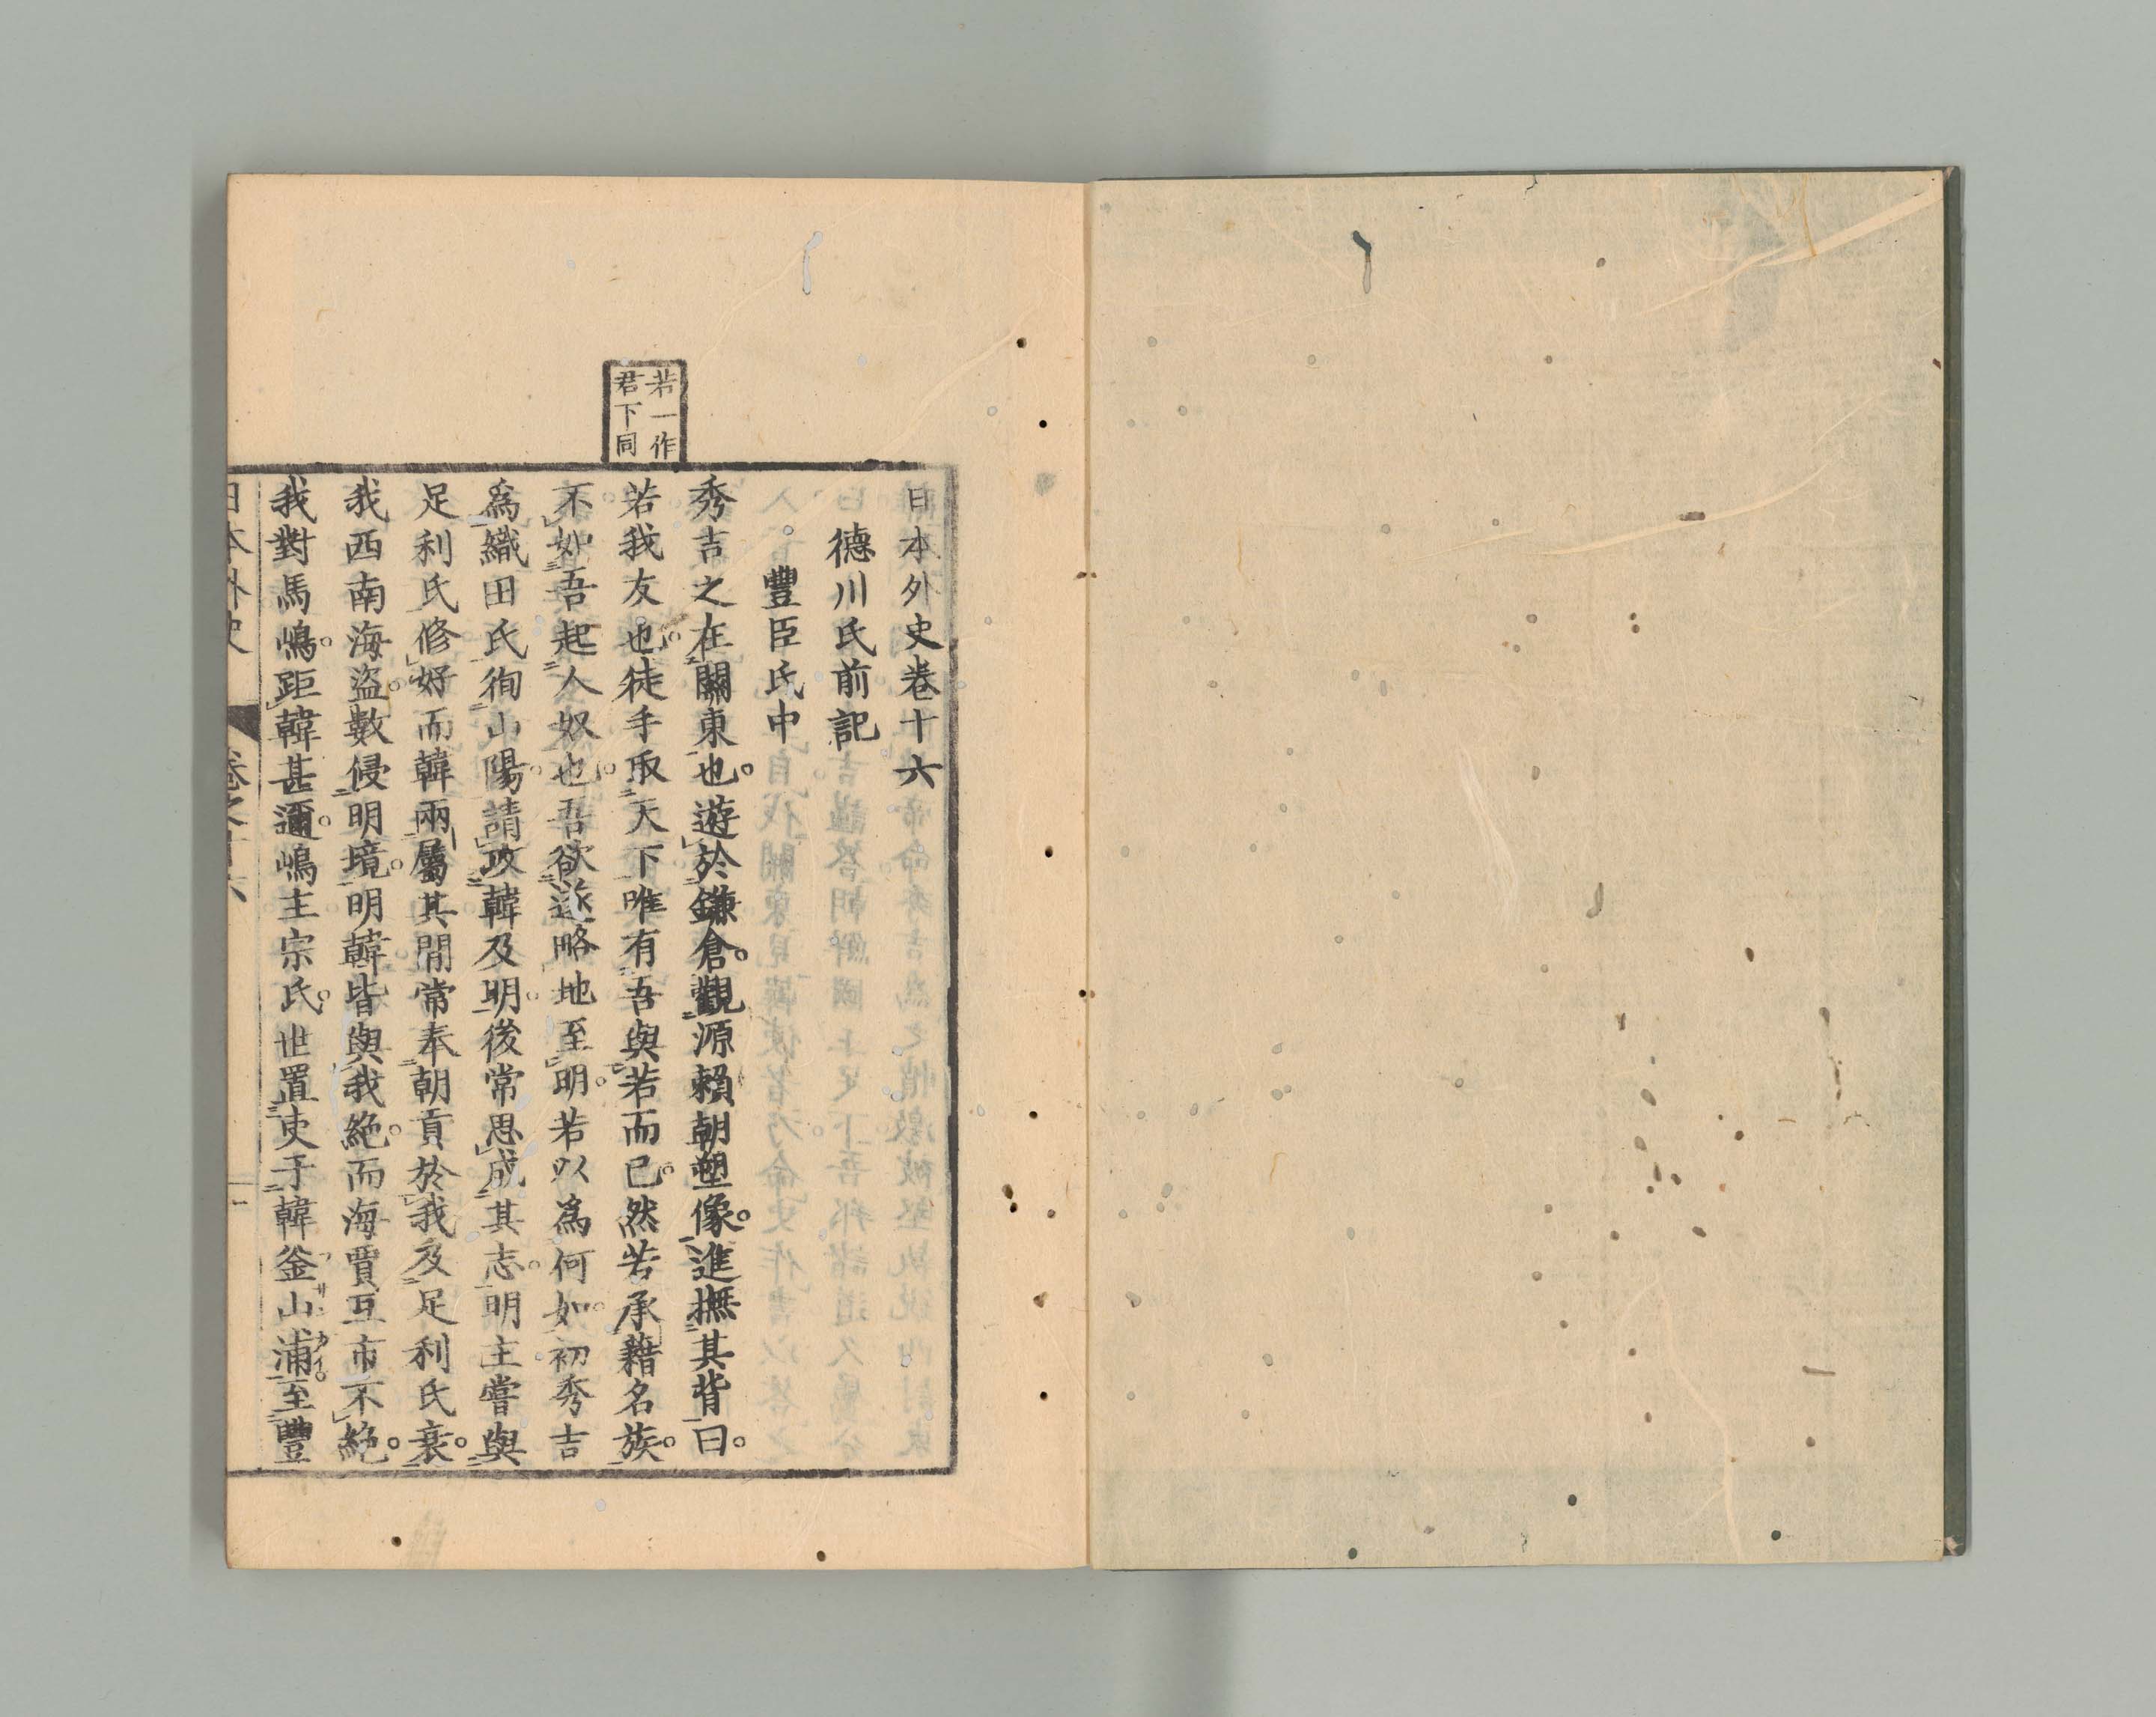 若一作
君下同
日本外史卷十六
德川氏前記
豐臣氏中
秀吉之在關東也。遊於鎌倉。觀源賴朝塑像。進撫其背曰。
若我友也。徒手取天下唯有吾與若而已。然若承藉名族。
不如吾起人奴也。吾欲遂略地至明。若以爲何如。初秀吉
爲織田氏徇山陽。請攻韓及明。後常思成其志。明主嘗與
足利氏修好而韓兩屬其間常奉朝貢於我及足利氏衰。
我西南海盜。數侵明境。明韓皆與我絶。而海賈互市不絶。
我對馬嶋。距韓甚邇。嶋主宗氏。世置吏于韓釜山浦。至豐
日本外史 卷之十六 一